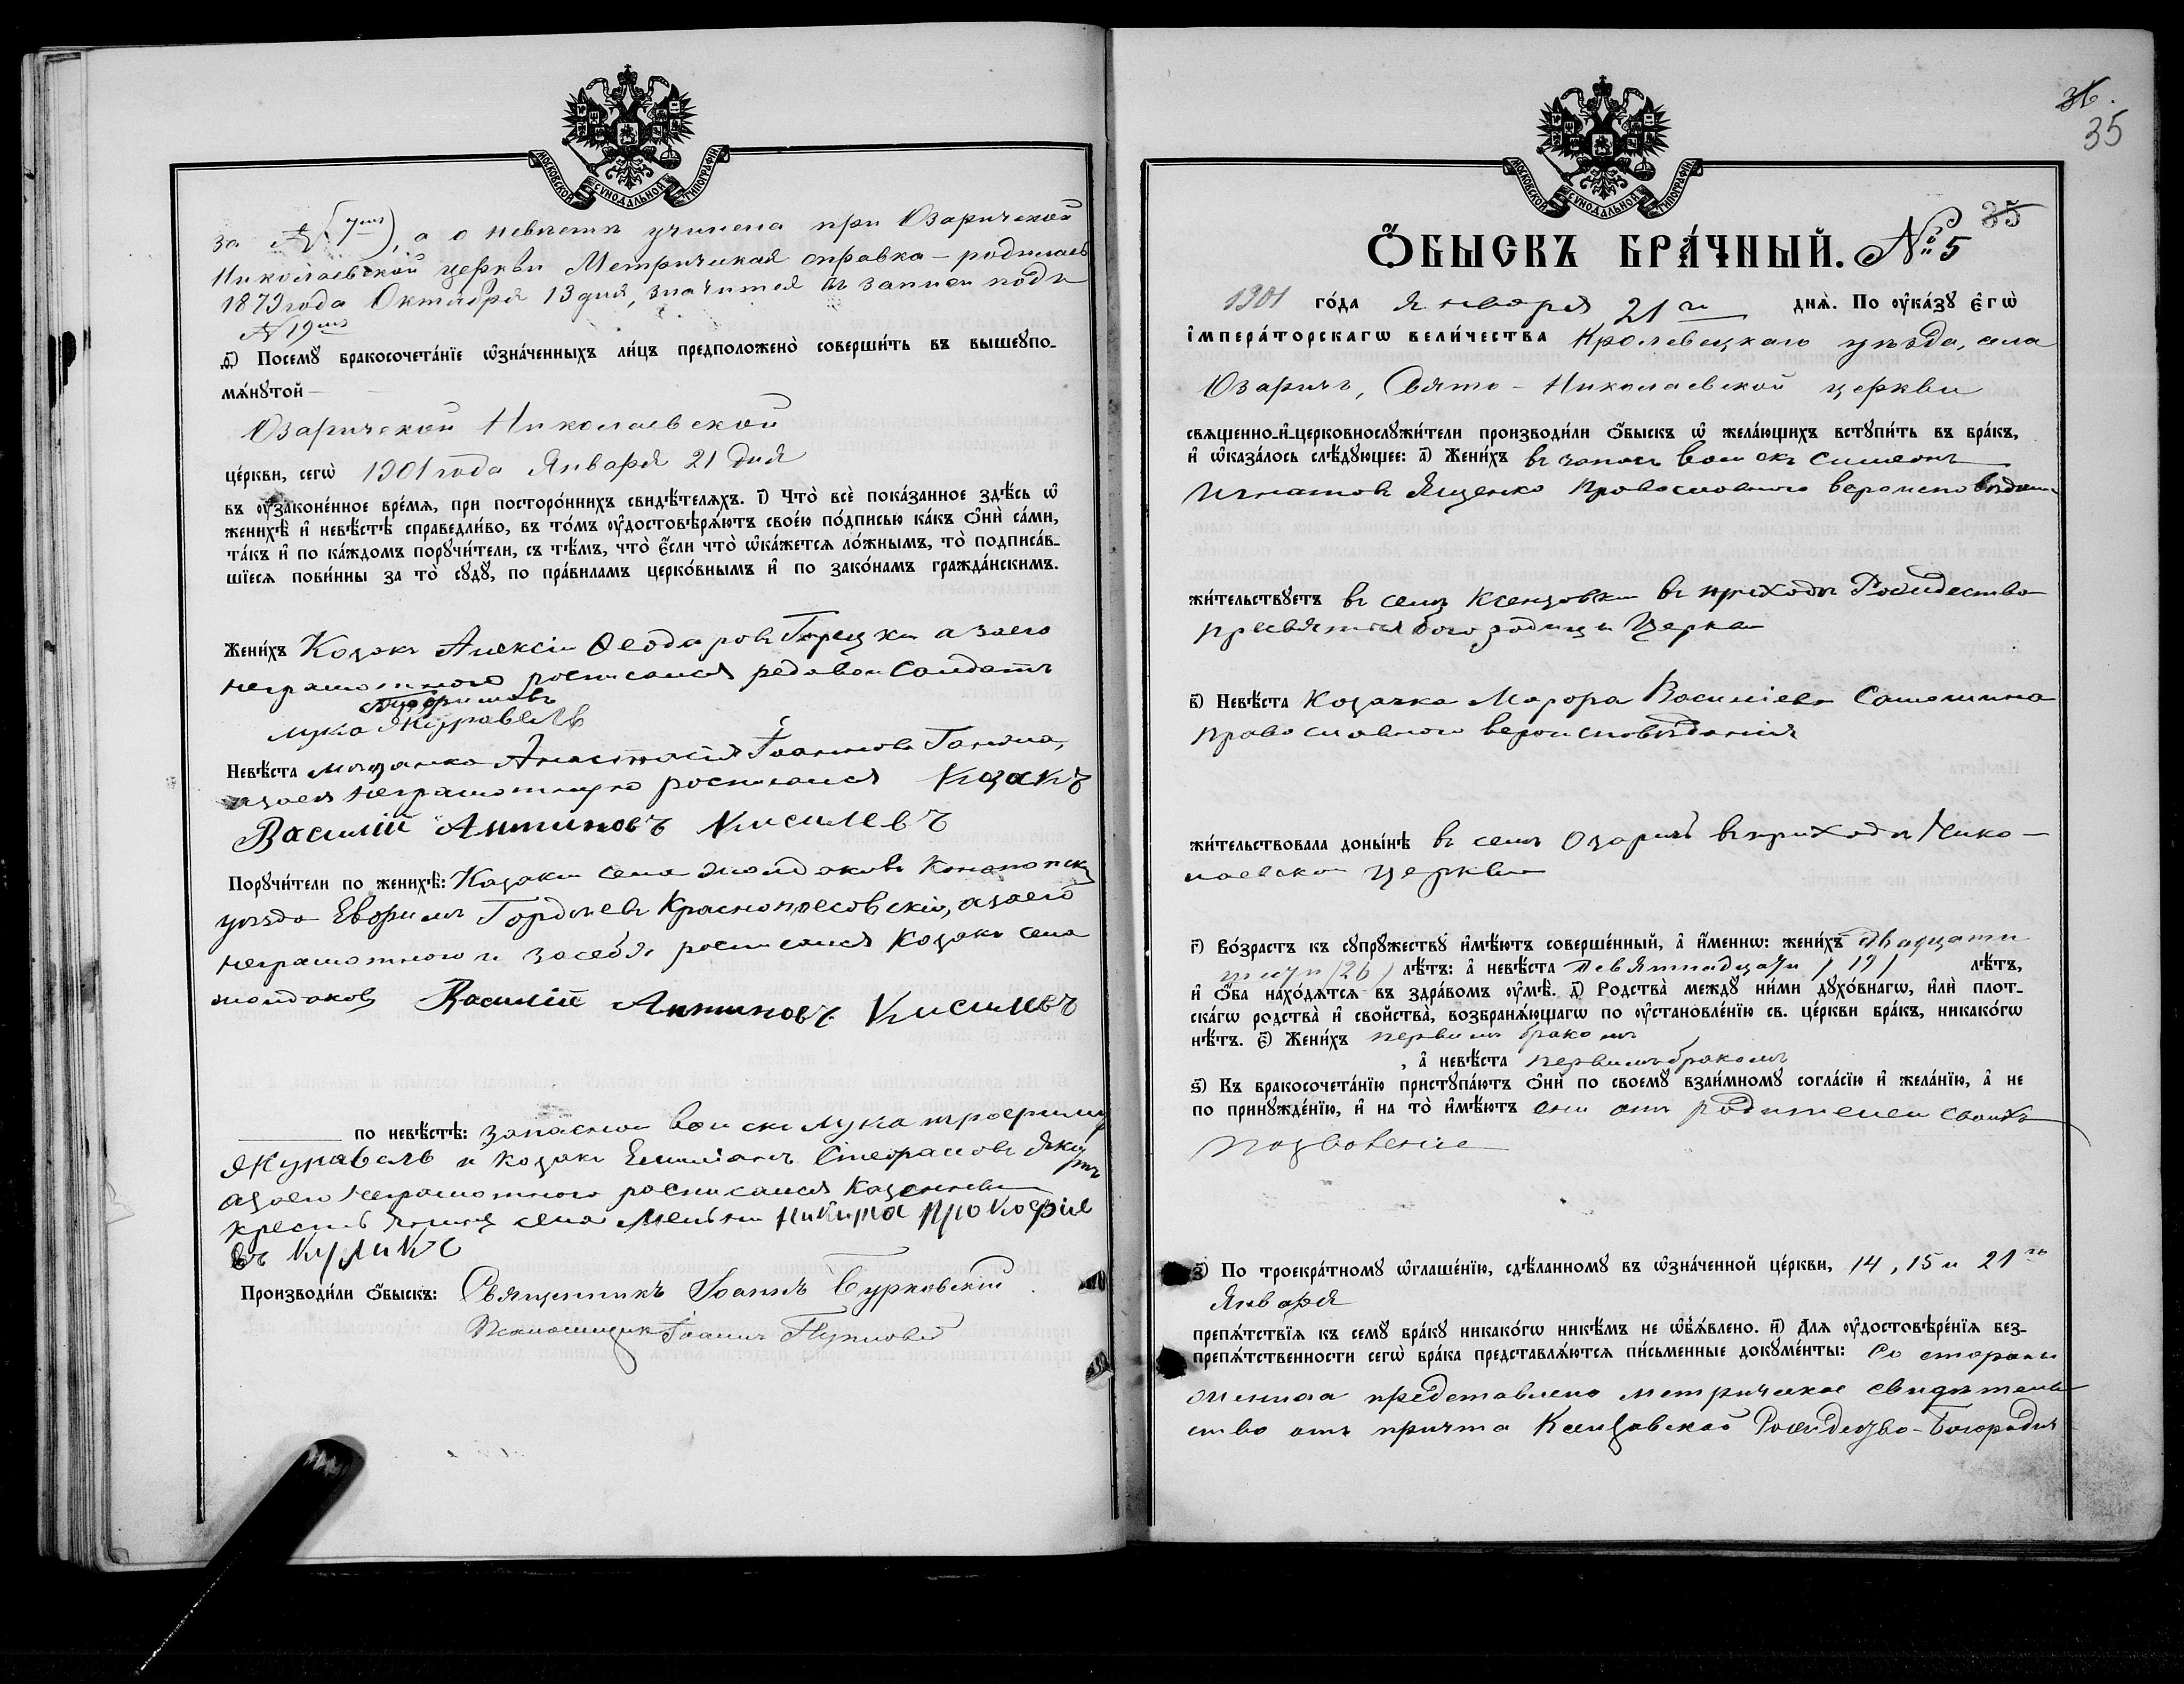 МОСКОВСКОЙ СѴНОДАЛЬНОЙ ТИПОГРАФІИ
за № 7мъ), а о невѣстѣ учинена при Озаричской
Николаевской церкви Метрическая справка – родилась
1879 года Октября 13 дня, значится въ записи подъ
№ 19мъ
Посемꙋ бракосочета́нїе ѡ҆зна́ченныхъ ли́цъ предположено̀ соверши́ть въ вышеꙋпо-
мѧ́нꙋтой
Озаричской Николаевской
це́ркви, сегѡ̀ 1901 года Января 21 дня
въ ᲂу҆законе́нное вре́мѧ, при посторо́ннихъ свидѣ́телѧхъ. і҃) Что̀ всѐ пока́занное здѣ́сь ѡ҆
женихѣ̀ и҆ невѣ́стѣ справедли́во, въ то́мъ ᲂу҆достовѣрѧ́ютъ свое́ю по́дписью ка́къ ѻ҆нѝ са́ми,
та́къ и҆ по ка́ждомъ порꙋчи́тели, съ тѣ́мъ, что̀ є҆́сли что̀ ѡ҆ка́жетсѧ ло́жнымъ, то̀ подписа́в-
шїесѧ пови́нны за то̀ сꙋдꙋ̀, по пра́виламъ церко́внымъ и҆ по зако́намъ гражда́нскимъ.
Жени́хъ Козакъ Алексій Ѳеодоровъ Горецки а заего
неграмотного росписался редовои Солдатъ
Трофимовъ
Лука Журавель
Невѣ́ста мѣщанка Анастасія Іоаннова
азаея неграмотную росписался Козакъ
Василій Антиповъ Кисилевъ
Порꙋчи́тели по женихѣ̀: Козаки села Жолдаковъ Конотопск
уѣзда Евфимъ Гордѣевъ Краснопоесовскій, азаего
неграмотного и засебя росписался Козакъ села
жолдаковъ Василій Антиповъ Кисилевъ
по невѣ́стѣ: запасной воиски Лука трофимо
Журавель и козакъ Емиліанъ Стефановъ
азаего неграмотного росписался Казенный
села Мельни Никита Прокофіе
въ Куликъ
Производи́ли ѻ҆́быскъ: Священникъ Іоаннъ Бурковскій
Псаломщикъ Іоаннъ
36.
35
МОСКОВСКОЙ СѴНОДАЛЬНОЙ ТИПОГРАФІИ
35
Ѻ҆́БЫСКЪ БРА́ЧНЫЙ. № 5
1901 го́да января 21го днѧ̀. По ᲂу҆ка́зꙋ є҆гѡ̀
і҆мпера́торскагѡ вели́чества Кролевецкаго уѣзда, села
Озаричъ, Свято-Николаевской церкви
свѧщенно-и҆-церковнослꙋжи́тели производи́ли ѻ҆́быскъ ѡ҆ жела́ющихъ встꙋпи́ть въ бра́къ,
и҆ ѡ҆каза́лось слѣ́дꙋющее: а҃) Жени́хъ въ запасъ воискъ Симеонъ
Игнатовъ Ященко Православного вероисповѣдани
жи́тельствꙋетъ въ селѣ Ксензовки въ приходѣ Рождество
пресвятыя богородицы Церкви
в҃) Невѣ́ста Козачка Марфа Василіева
православного вероисповѣданія
жи́тельствовала доны́нѣ въ селѣ Озаричъ въ приходѣ Нико-
лаевско Церкви
г҃) Во́зрастъ къ сꙋпрꙋ́жествꙋ и҆мѣ́ютъ соверше́нный, а҆ и҆́менно: жени́хъ Двадцати
шести (26) лѣ́тъ: а҆ невѣ́ста девятнадцати (19) лѣ́тъ,
и҆ ѻ҆́ба нахо́дѧтсѧ въ здра́вомъ ᲂу҆мѣ̀. д҃) Родства̀ междꙋ̀ ни́ми дꙋхо́внагѡ, и҆лѝ плот-
ска́гѡ родства̀ и҆ сво́йства, возбранѧ́ющагѡ по ᲂу҆становле́нїю св. це́ркви бра́къ, никако́гѡ
нѣ́тъ. є҃) Жени́хъ первымъ бракомъ
, а҆ невѣ́ста первымъ бракомъ
ѕ҃) Къ бракосочета́нїю пристꙋпа́ютъ ѻ҆нѝ по своемꙋ̀ взаи́мномꙋ согла́сїю и҆ жела́нїю, а҆ не
по принꙋжде́нїю, и҆ на то̀ и҆мѣ́ютъ они отъ родителей своихъ
позволеніе
з҃) По троекра́тномꙋ ѡ҆глаше́нїю, сдѣ́ланномꙋ въ ѡ҆зна́ченной це́ркви, 14, 15 и 21го
Января
препѧ́тствїѧ къ семꙋ̀ бра́кꙋ никако́гѡ никѣ́мъ не ѡ҆б̾ѧ́влено. и҃) Длѧ ᲂу҆достовѣре́нїѧ без-
препѧ́тственности сегѡ̀ бра́ка представлѧ́ютсѧ пи́сьменные докꙋме́нты: Со стороны
жениха представлено метрическое свидѣтель-
ство отъ причта Ксензовской Рождество-Богородич